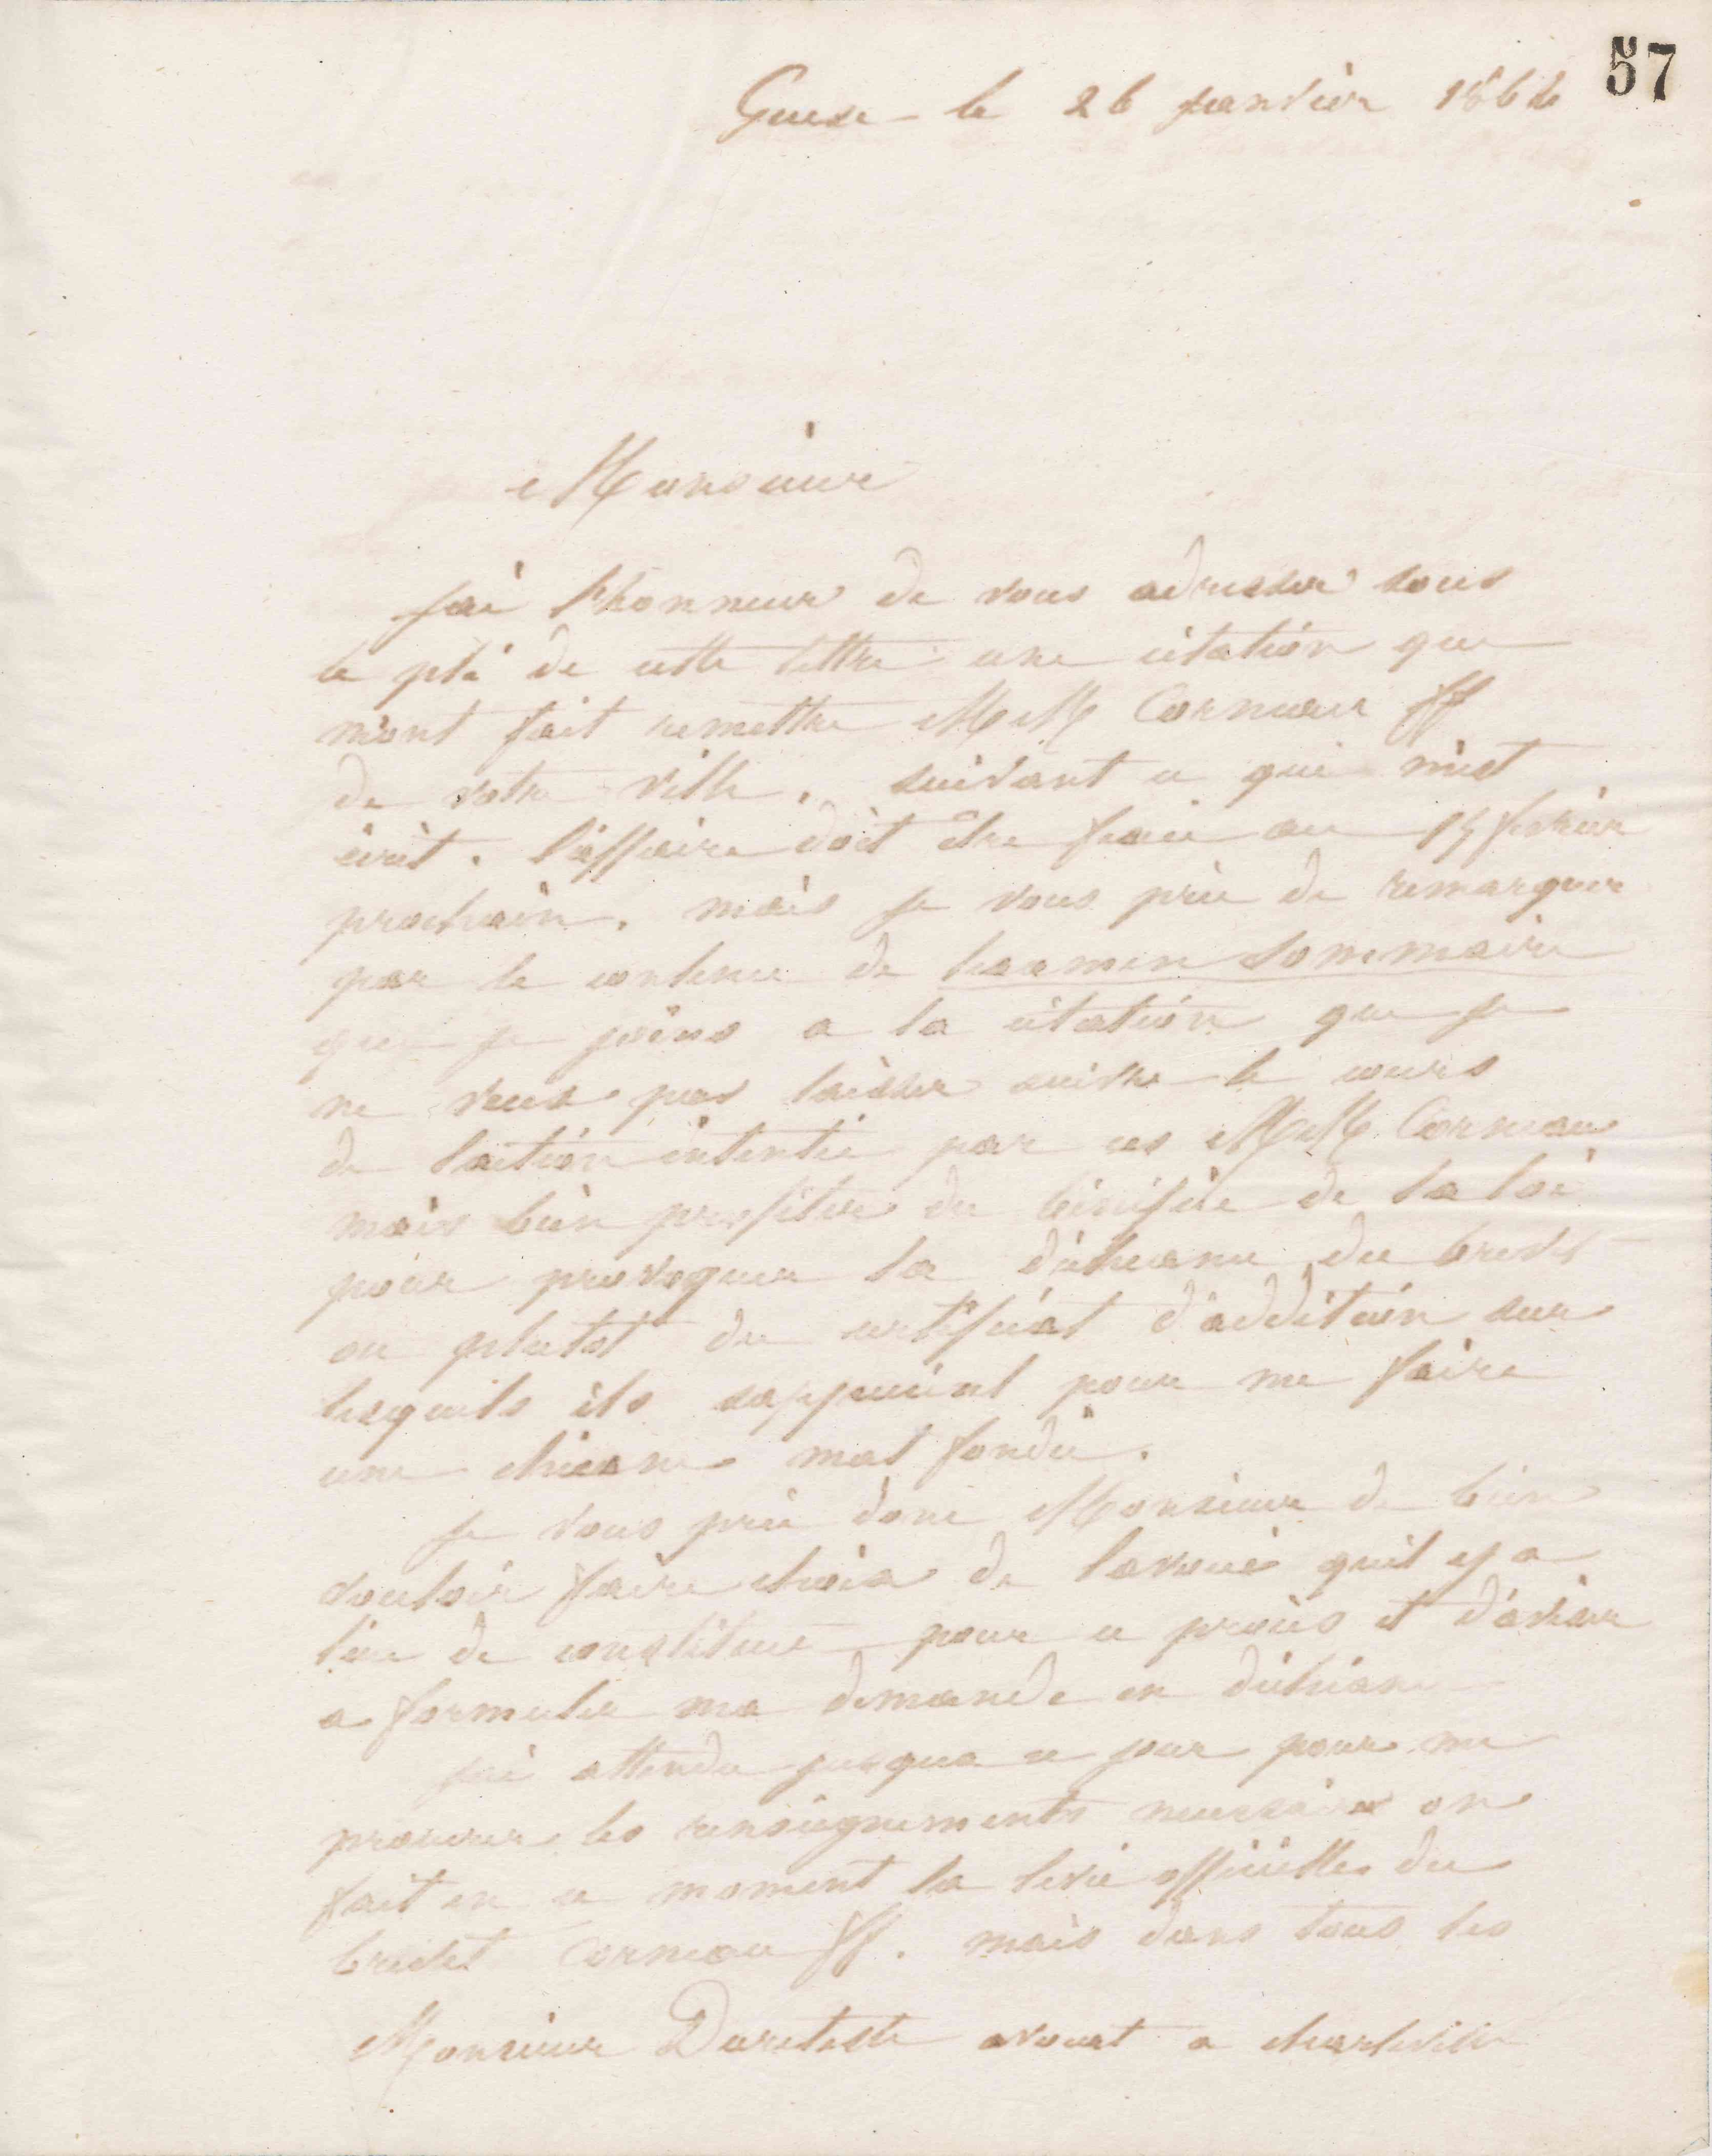 57
Guise le 26 janvier 1864
Monsieur
jai lhonneur de vous adresser sous
ce pli de cette lettre une citation que
mont fait remettre MM Corneau ff
de votre ville. suivant ce qui mest
écrit. laffaire doit être fixée au 15 février
prochain. mais je vous prie de remarquer
par le contenu de lexamen sommaire
que je joins a la citation que je
ne veux pas laisser suivre le cours
de laction intentée par ces MM. Corneau
mais bien profiter du bénifice de la loi
pour provoquer la déchéance du brevet
ou plutot du certificat d'addition sur
lesquels ils sappuient pour me faire
une chicane mal fondée.
je vous prie donc Monsieur de bien
vouloir faire choix de lavoué quil y a
lieu de constituer pour ce procès et d'aviser
a formuler ma demande en déchéance
jai attendu jusqua ce jour pour me
procurer les renseignements necessaires on
fait en ce moment la levée officielle du
brevet Corneau ff. mais dans tous les
Monsieur avocat a charleville